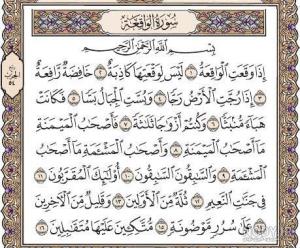 سُورَةُ الوَاقِعَةِ
بِسْمِ اللَّهِ الرَّحْمَٰنِ الرَّحِيمِ
إِذَا وَقَعَتِ الْوَاقِعَةُ ١ لَيْسَ لِوَقْعَتِهَا كَاذِبَةٌ ٢ خَافِضَةٌ رَّافِعَةٌ
٣ إِذَا رُجَّتِ الْأَرْضُ رَجًّا ٤ وَبُسَّتِ الْجِبَالُ بَسًّا ٥ فَكَانَتْ
هَبَاءً مُّنۢبَثًّا ٦ وَكُنتُمْ أَزْوَاجًا ثَلَاثَةً ٧ فَأَصْحَابُ الْمَيْمَنَةِ
مَا أَصْحَابُ الْمَيْمَنَةِ ٨ وَأَصْحَابُ الْمَشْـَٔمَةِ مَا أَصْحَابُ
الْمَشْـَٔمَةِ ٩ وَالسَّابِقُونَ السَّابِقُونَ ١٠ أُولَٰئِكَ الْمُقَرَّبُونَ ١١
فِي جَنَّاتِ النَّعِيمِ ١٢ ثُلَّةٌ مِّنَ الْأَوَّلِينَ ١٣ وَقَلِيلٌ مِّنَ الْآخِرِينَ
١٤ عَلَىٰ سُرُرٍ مَّوْضُونَةٍ ١٥ مُّتَّكِـِٔينَ عَلَيْهَا مُتَقَابِلِينَ ١٦